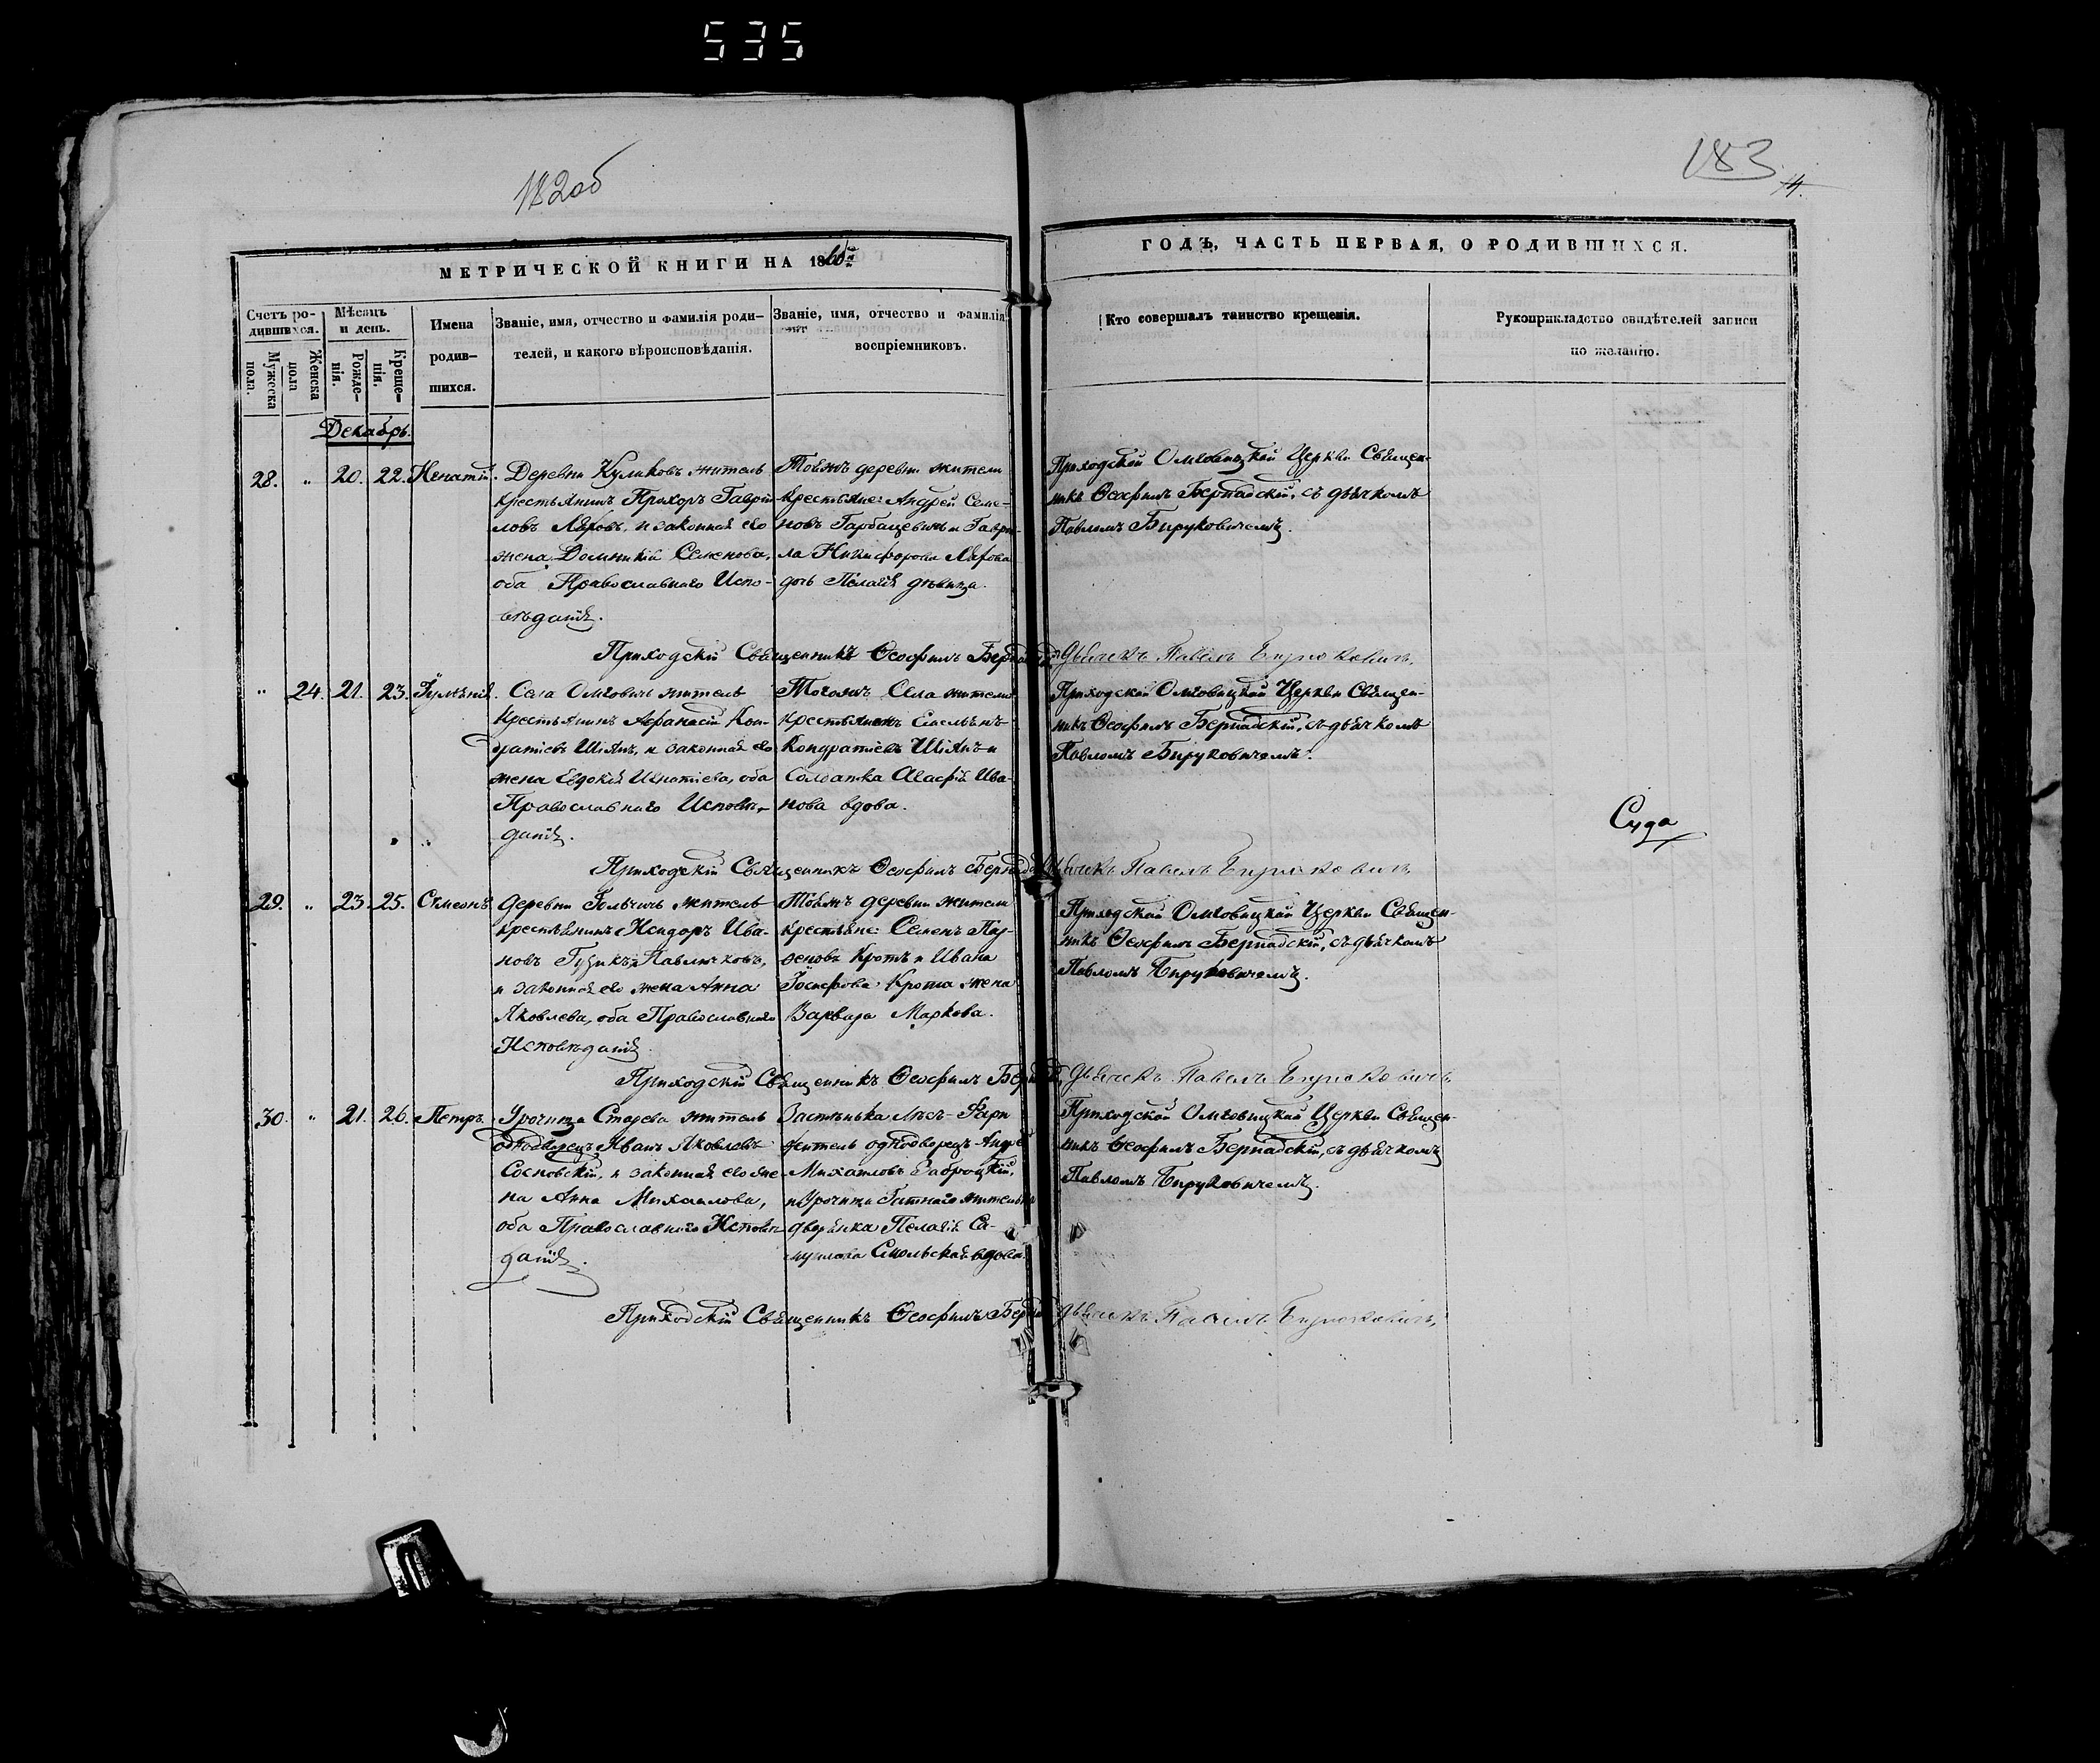 535
182об
183
14.
МЕТРИЧЕСКОЙ КНИГИ НА 1860й
ГОДЪ, ЧАСТЬ ПЕРВАЯ, О РОДИВШИХСЯ.
Счетъ ро-
дившихся.
Мужеска
пола.
Женска
пола
Мѣсяцъ
и день.
Рожде-
нія.
Креще-
нія.
Имена
родив-
шихся.
Званіе, имя, отчество и фамилія роди-
телей, и какого вѣроисповѣданія.
Званіе, имя, отчество и фамилія
воспріемниковъ.
Кто совершалъ таинство крещенія.
Рукоприкладство свидѣтелей записи
по желанію.
Декабрь.
28. „ 20. 22. Игнатій.
Деревни Куликовъ житель
крестьянинъ Григоръ Гаврі-
ловъ Ляховъ, и законная его
жена Домникія Семенова,
оба Православнаго Испо-
вѣданія.
Тояжъ деревни жители
крестьяне: Андрей Семе-
новъ Гарбацевичъ и Гаври-
ла Никифорова Ляхова
дочь Пелагія дѣвица.
Приходской Омговицкой Церкви Священ-
никъ Ѳеофилъ Бернадскій, съ дьячкомъ
Павломъ Бируковичемъ.
Приходскій Священникъ Ѳеофилъ Бернадскій
Дьячекъ Павелъ Бируковичъ
„ 24. 21. 23. Іуліанія.
Села Омговичъ житель
крестьянинъ Афанасій Кон-
дратіевъ Шіянъ, и законная его
жена Евдокія Игнатіева, оба
Православнаго Исповѣ-
данія.
Тогожъ Села жители
крестьянинъ Емельянъ
Кондратіевъ Шіянъ и
Солдатка Агафія Ива-
нова вдова.
Приходской Омговицкой Церкви Священ-
никъ Ѳеофилъ Бернадскій, съ дьячкомъ
Павломъ Бируковичемъ.
Суда
Приходскій Священникъ Ѳеофилъ Бернадскій
Дьячекъ Павелъ Бируковичъ
29. „ 23. 25. Симеонъ
Деревни житель
крестьянинъ Исидоръ Ива-
новъ Гузикъ Павлючковъ,
и законная его жена Анна
Яковлева, оба Православнаго
Исповѣданія
Тояжъ деревни жители
крестьяне: Семенъ Пар-
феновъ Кротъ и Ивана
Іосифова Крота жена
Варвара Маркова.
Приходской Омговицкой Церкви Священ-
никъ Ѳеофилъ Бернадскій, съ дьячкомъ
Павломъ Бируковичемъ.
Приходскій Священникъ Ѳеофилъ
Дьячекъ Павелъ Бируковичъ
30. „ 21. 26. Петръ.
Урочища Старева житель
однодворецъ Иванъ Яковлевъ
Сосновскій, и законная его же-
на Анна Михаилова,
оба Православнаго Исповѣ-
данія.
Застѣнька Лясъ-Фари
житель однодворецъ Андрей
Михаиловъ
и Урочища жительница
дворянка Пелагія Са-
муилова Смольская вдова.
Приходской Омговицкой Церкви Священ-
никъ Ѳеофилъ Бернадскій, съ дьячкомъ
Павломъ Бируковичемъ.
Приходскій Священникъ Ѳеофилъ
Дьячекъ Павелъ Бируковичъ